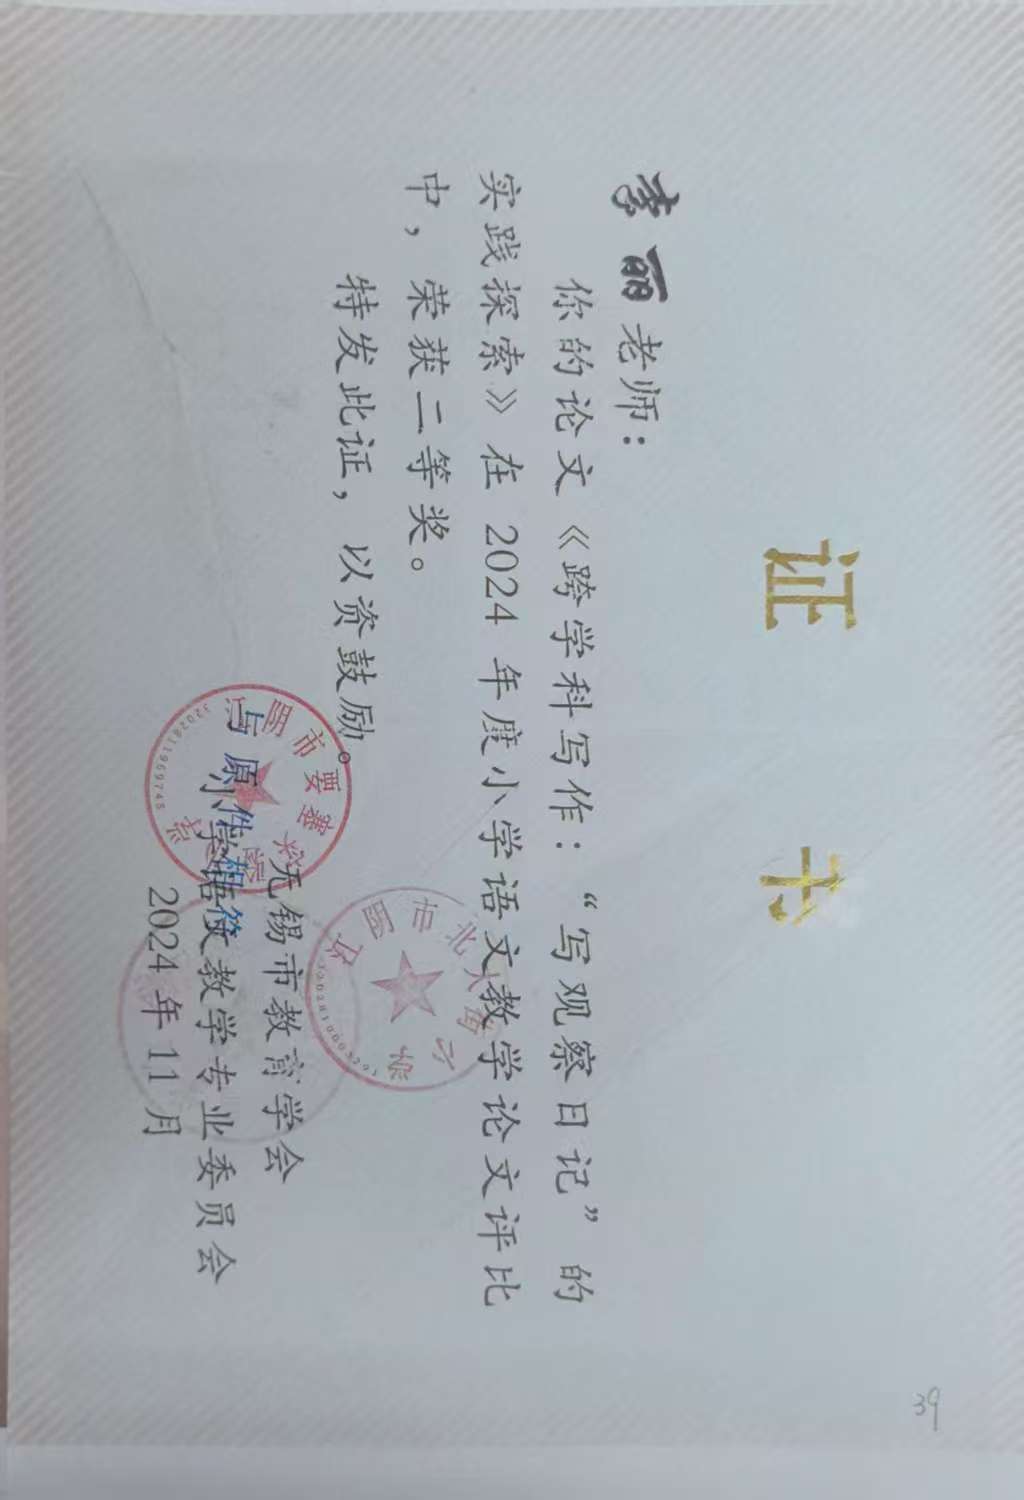 证 书
李丽老师：
你的论文《跨学科写作：“写观察日记”的
实践探索》在 2024 年度小学语文教学论文评比
中，荣获二等奖。
特发此证，以资鼓励。
无锡市教育学会
小学语文教学专业委员会
2024 年 11 月
与原件相符
39